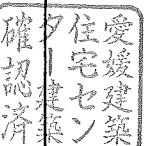 愛媛建築
住宅セン
ター建築
確認済